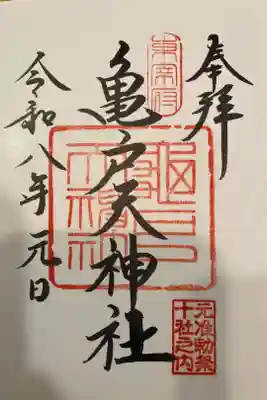 奉拝
東宰府
亀戸天神社
元准勅祭
十社之内
令和八年元日